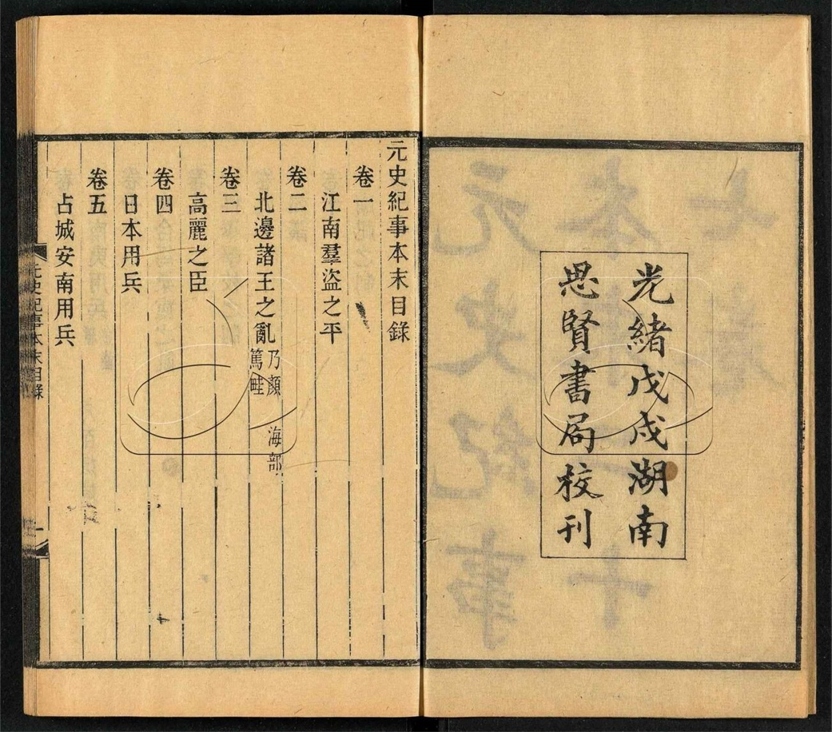 光緒戊戌湖南
思賢書局校刊
元史紀事本末目錄
卷一
江南羣盜之平
卷二
北邊諸王之亂 乃顏 海都 篤哇
卷三
高麗之臣
卷四
日本用兵
卷五
占城安南用兵
元史紀事本末目錄
一